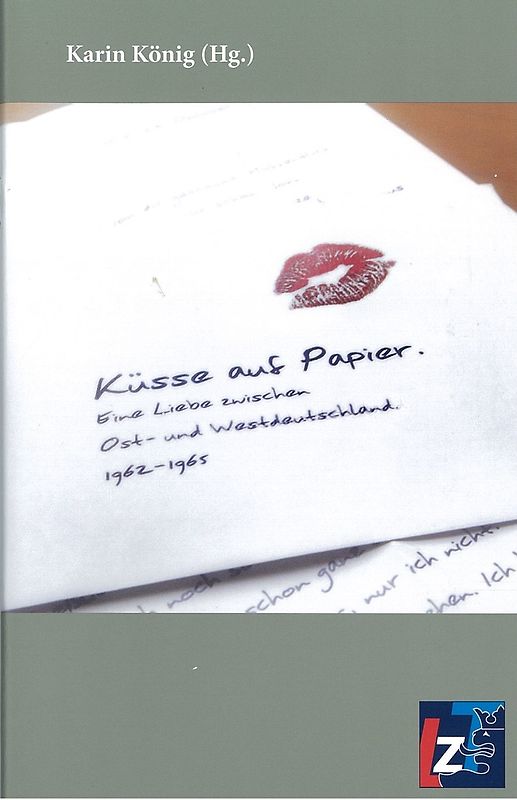 Karin König (Hg.)
Küsse auf Papier.
Eine Liebe zwischen
Ost- und Westdeutschland.
1962–1965
noch
schon ganz
nur ich nicht.
Ich
LZ